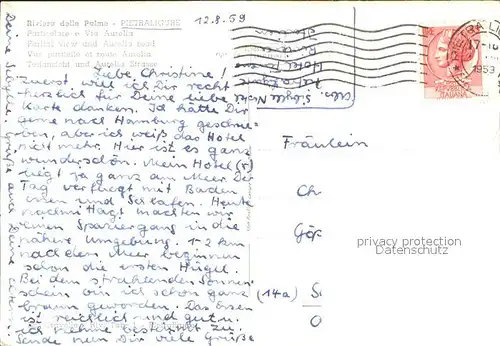 12.8.59
Riviera delle Palme - PIETRALIGURE
Particolare e Via Aurelia
Partial view and Aurelia road
Vue partielle et route Aurelia
Teilansicht und Aurelia Strasse
Liebe Christine!
Zuerst will ich Dir recht
herzlich für Deine liebe
Karte danken. Ich hätte Dir
gerne nach Hamburg geschrie-
ben, aber ich weiß das Hotel
nicht mehr. Hier ist es ganz
wunderschön. Mein Hotel (x)
liegt ja ganz am Meer. Der
Tag verfliegt mit Baden
Essen und Schlafen. Heute
nachmittagt machten wir
einen Spaziergang in die
nähere Umgebung. 1-2 km
nach dem Meer beginnen
schon die ersten Hügel.
Bei dem strahlenden Sonnen-
schein bin ich schon ganz
braun geworden. Das Essen
ist reichlich und gut u.
ich nehme bestimmt zu.
Sende nun Dir viele Grüße
Deine Sibylle. Grüße auch Deine Eltern!
Abs. Sibylle
Hotel
Pietra Ligure
ITALIANA
17-18
1959
Fräulein
Ch
Göp
(14a) S
privacy protection
Datenschutz